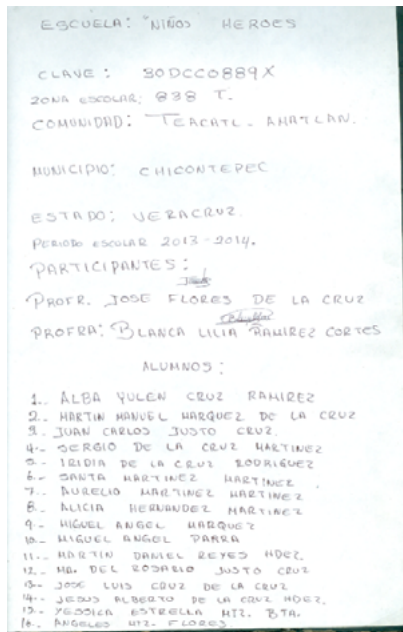 ESCUELA: "NIÑOS HEROES
CLAVE: 30DCC0889X
ZONA ESCOLAR: 838 T.
COMUNIDAD: TEACATL-AHATLAN.
MUNICIPIO: CHICONTEPEC
ESTADO: VERACRUZ.
PERIODO ESCOLAR 2013-2014.
PARTICIPANTES:
PROFR. JOSE FLORES DE LA CRUZ
PROFRA: BLANCA LILIA RAMIREZ CORTES
ALUMNOS:
1.- ALBA YULEN CRUZ RAMIREZ
2.- MARTIN MANUEL MARQUEZ DE LA CRUZ
3.- JUAN CARLOS JUSTO CRUZ.
4.- SERGIO DE LA CRUZ MARTINEZ
5.- IRIDIA DE LA CRUZ RODRIGUEZ
6.- SANTA MARTINEZ MARTINEZ
7.- AURELIO MARTINEZ MARTINEZ
8.- ALICIA HERNANDEZ MARTINEZ
9.- MIGUEL ANGEL MARQUEZ
10.- MIGUEL ANGEL PARRA
11.- MARTIN DANIEL REYES HDEZ.
12.- MA. DEL ROSARIO JUSTO CRUZ
13.- JOSE LUIS CRUZ DE LA CRUZ
14.- JESUS ALBERTO DE LA CRUZ HDEZ.
15.- YESSICA ESTRELLA MTZ. BTA.
16.- ANGELES MTZ. FLORES.